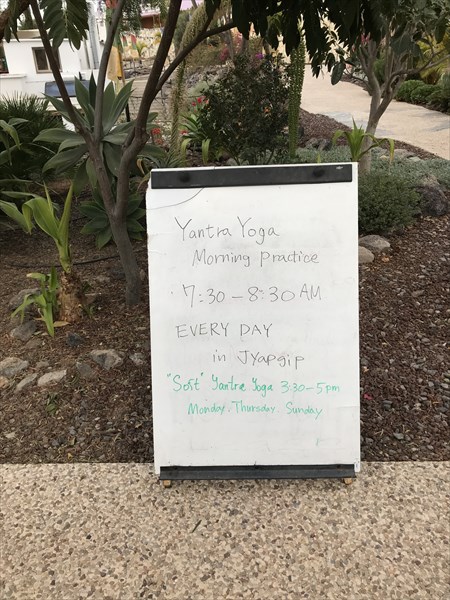 Yantra Yoga
Morning practice
7:30 - 8:30 AM
EVERY DAY
in JYapgip
"Soft" Yantra Yoga 3:30-5pm
Monday. Thursday. Sunday